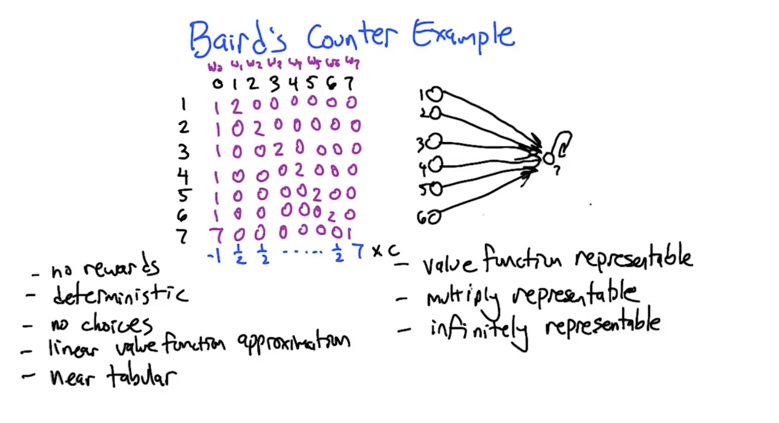 Baird's Counter Example
w0 w1 w2 w3 w4 w5 w6 w7
0 1 2 3 4 5 6 7
1 1 2 0 0 0 0 0 0
2 1 0 2 0 0 0 0 0
3 1 0 0 2 0 0 0 0
4 1 0 0 0 2 0 0 0
5 1 0 0 0 0 2 0 0
6 1 0 0 0 0 0 2 0
7 7 0 0 0 0 0 0 1
-1 1/2 1/2 ...... 1/2 7 × C
1
2
3
4
5
6
7
- no rewards
- deterministic
- no choices
- linear value function approximation
- near tabular
- value function representable
- multiply representable
- infinitely representable